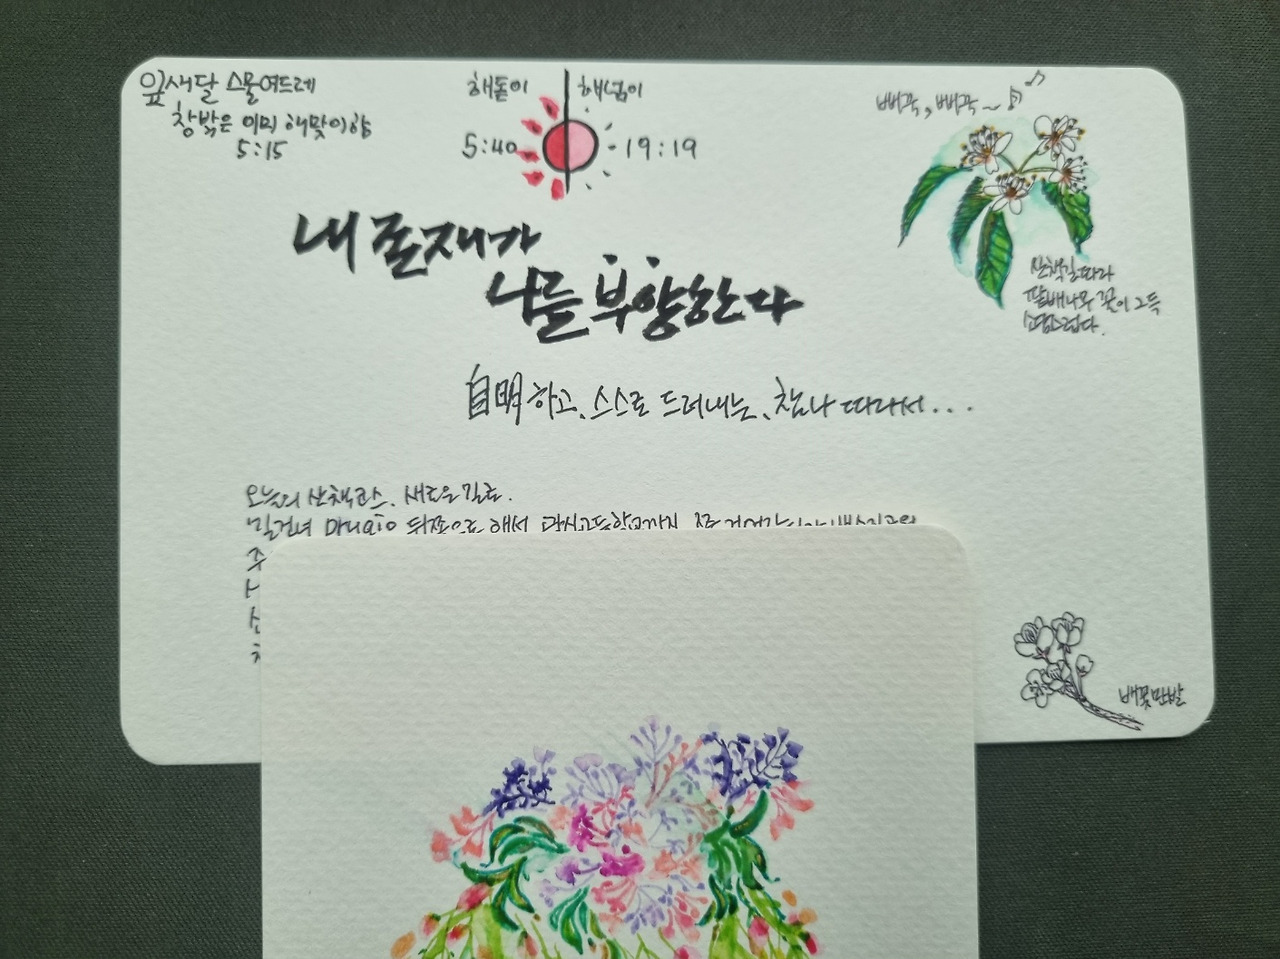 잎새달 스물여드레
창밖은 이미 해맞이한
5:15
해돋이 해넘이
5:40 19:19
뻐꾹, 뻐꾹~
내 존재가
나를 부양한다
산책길따라
팥배나무 꽃이 그득
自明하고, 스스로 드러내는, 참나 따라서...
오늘의 산책코스. 새로운 길로.
뒤쪽으로 해서 과시고등학교까지 쭉
배꽃만발